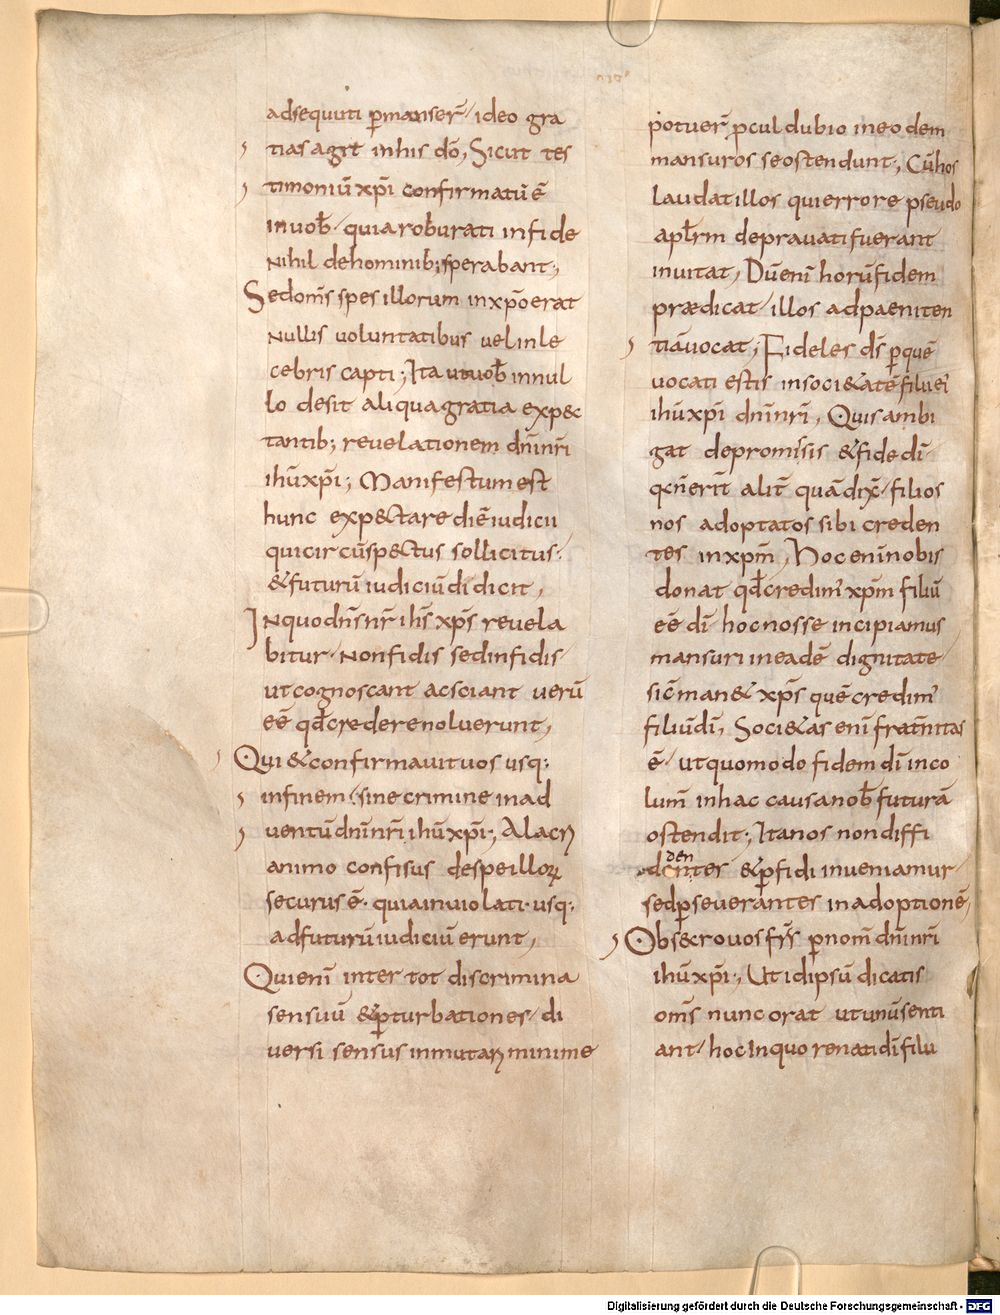 adsequuti ꝑmanser̄ ideo gra
tias agit in his dō, Sicut tes
timoniū xp̄i confirmatū ē
in uob̄ quia roburati in fide
nihil de hominib; sperabant;
Sed om̄s spes illorum in xp̄o erat
nullis voluntatibus vel inle
cebris capti; Ita ut uob̄ in nul
lo desit aliqua gratia exp&c
tantib; revelationem dn̄i nr̄i
ihū xp̄i; Manifestum est
hunc exp&ctare diē iudicii
qui circūsp&ctus sollicitus;
& futurū iudiciū didicit,
In quo dn̄s nr̄ ihs̄ xp̄s revela
bitur non fidis sed infidis
ut cognoscant ac sciant uerū
eē qd̄ credere noluerunt,
Qui & confirmauit uos usq;
in finem sine crimine in ad
uentū dn̄i nr̄i ihū xp̄i; Alacri
animo confisus de spe illoꝝ
securus ē quia inuiolati usq;
ad futurū iudiciū erunt,
Qui enī inter tot discrimina
sensuū & ꝑturbationes di
versi sensus inmutari minime
potuer̄ ꝓcul dubio in eodem
mansuros se ostendunt, Cū hos
laudat illos qui errore pseudo
apl̄rm depravati fuerant
inuitat, Dū enī horū fidem
prædicat illos ad paeniten
tiā uocat; Fidelis ds̄ ꝑ quē
uocati estis in soci&atē filii ei'
ihū xp̄i dn̄i nr̄i, Quis ambi
gat de promissis & fide dī
alit̄ quā dix̄ filios
nos adoptatos sibi creden
tes in xp̄m, Hoc enī nobis
donat qd̄ credim' xp̄m filiū
eē dī hoc nosse incipiamus
mansuri in eadē dignitate
sic̄ man& xp̄s quē credim'
filiū dī, Soci&as enī frat̄nitas
ē ut quomodo fidem dī inco
lum̄ in hac causa nob̄ futurā
ostendit; Ita nos non diffi
den
dentes & ꝑfidi inueniamur
sed ꝑseuerantes in adoptionē,
Obsecro uos fr̄s ꝑ nom̄ dn̄i nr̄i
ihū xp̄i; Ut idipsū dicatis
om̄s nunc orat ut unū senti
ant hoc in quo renati dī filii
Digitalisierung gefördert durch die Deutsche Forschungsgemeinschaft - DFG